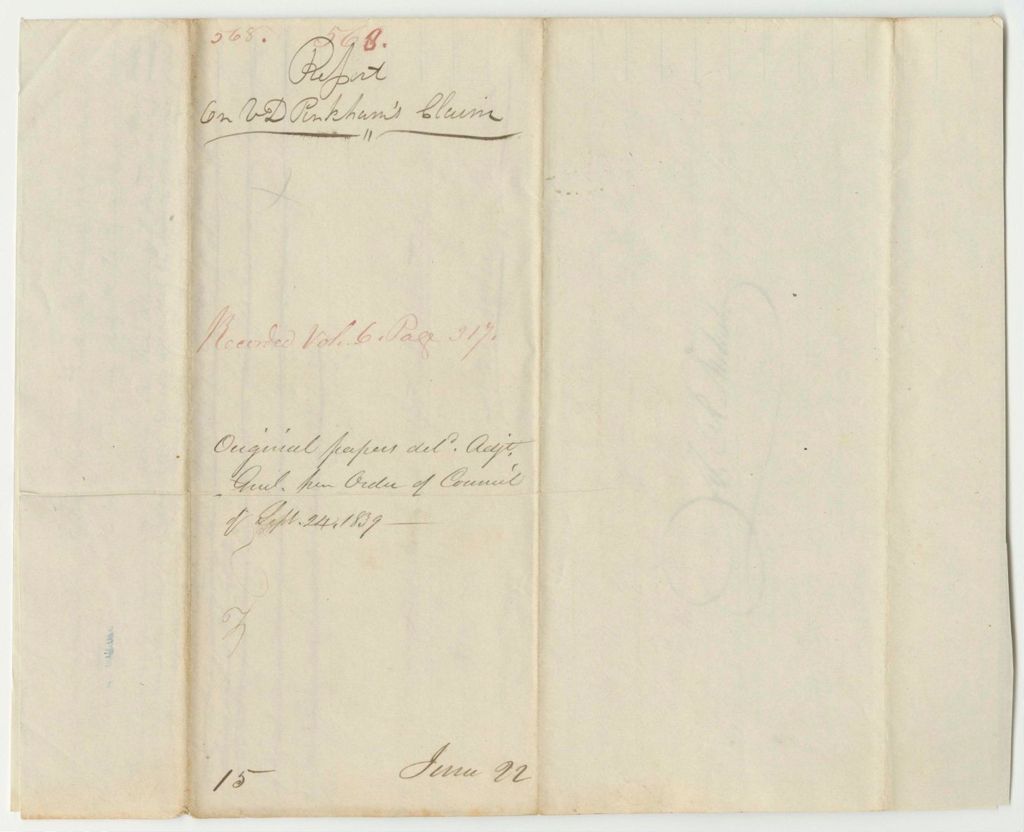 568. 568.
Report
On V D Pinkham's Claim
Recorded Vol. 6. Page 317.
Original papers deld. Adjt.
Genl. per Order of Council
of Sept. 24, 1839
15 June 22